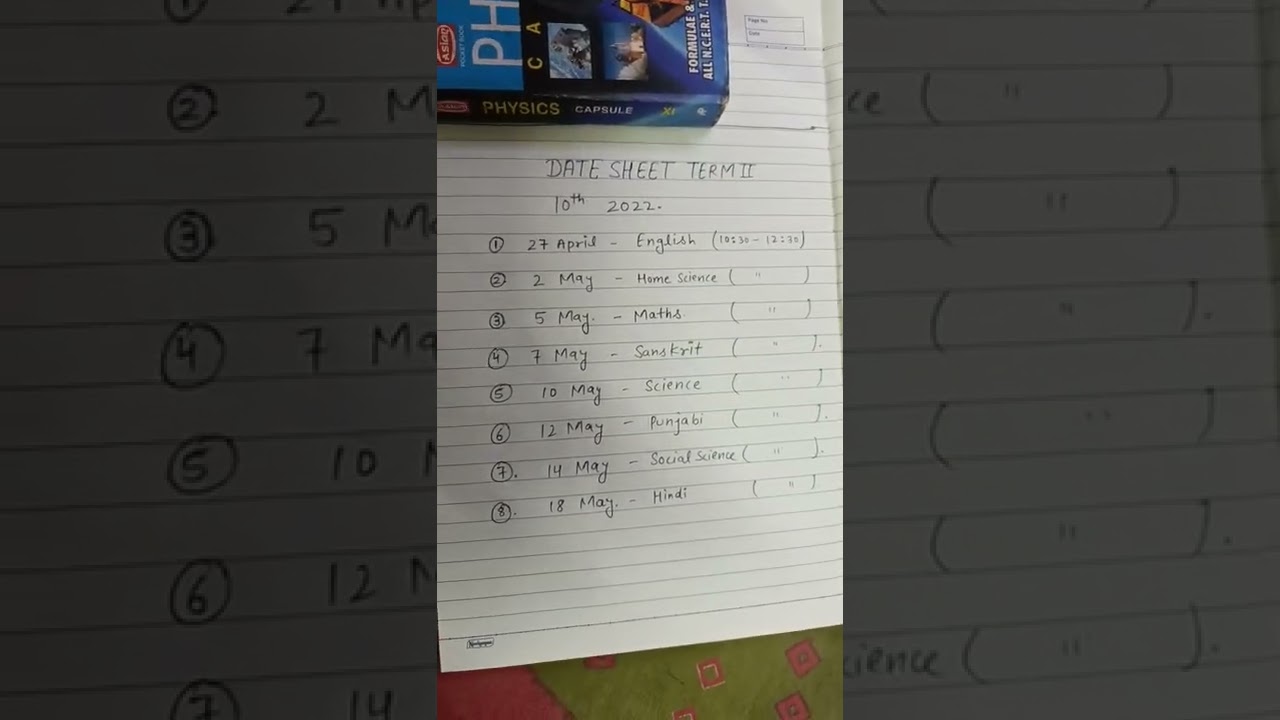 ASIAN
POCKET BOOK
PH
C A
FORMULAE &
ALL N.C.E.R.T. T
PHYSICS CAPSULE XI
Page No.
Date
DATE SHEET TERM II
10th 2022.
① 27 April - English (10:30 - 12:30)
② 2 May - Home Science ( " )
③ 5 May. - Maths. ( " )
④ 7 May - Sanskrit ( " ).
⑤ 10 May - Science ( " )
⑥ 12 May - Punjabi ( " ).
⑦. 14 May - Social Science ( " ).
⑧. 18 May. - Hindi ( " )